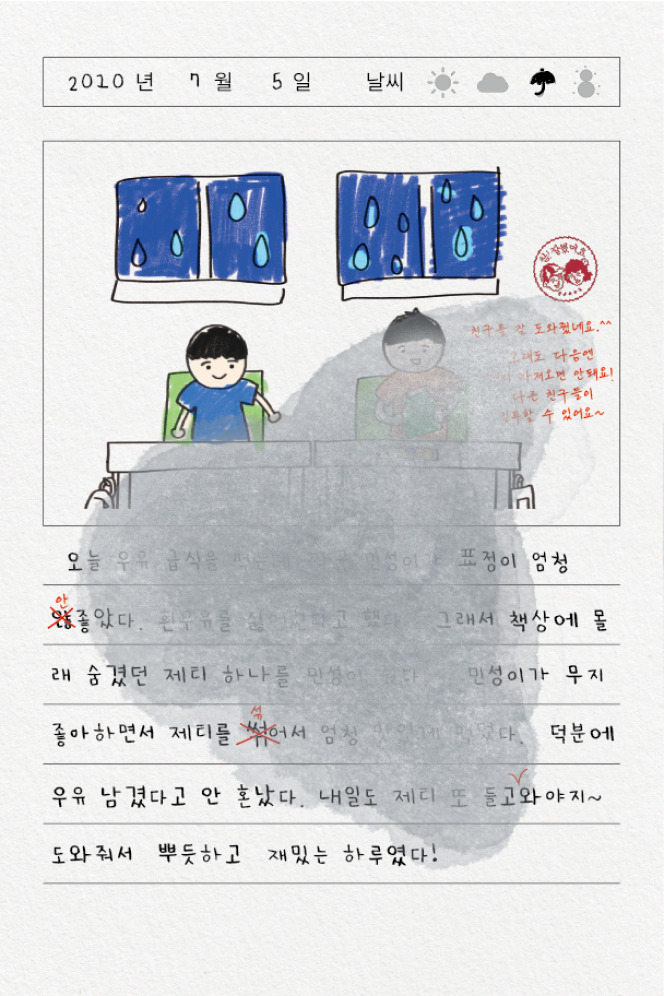 2010 년 7 월 5 일 날씨
참! 잘했어요
친구를 잘 도와줬네요.^^
그래도 다음엔
가져오면 안돼요!
다른 친구들이
수 있어요~
오늘 우유 급식을 민성이가 표정이 엄청
안
않좋았다. 흰우유를 했다. 그래서 책상에 몰
래 숨겼던 제티 하나를 민성이 민성이가 무지
섞
좋아하면서 제티를 썪어서 엄청 먹었다. 덕분에
우유 남겼다고 안 혼났다. 내일도 제티 또 들고와야지~
도와줘서 뿌듯하고 재밌는 하루였다!